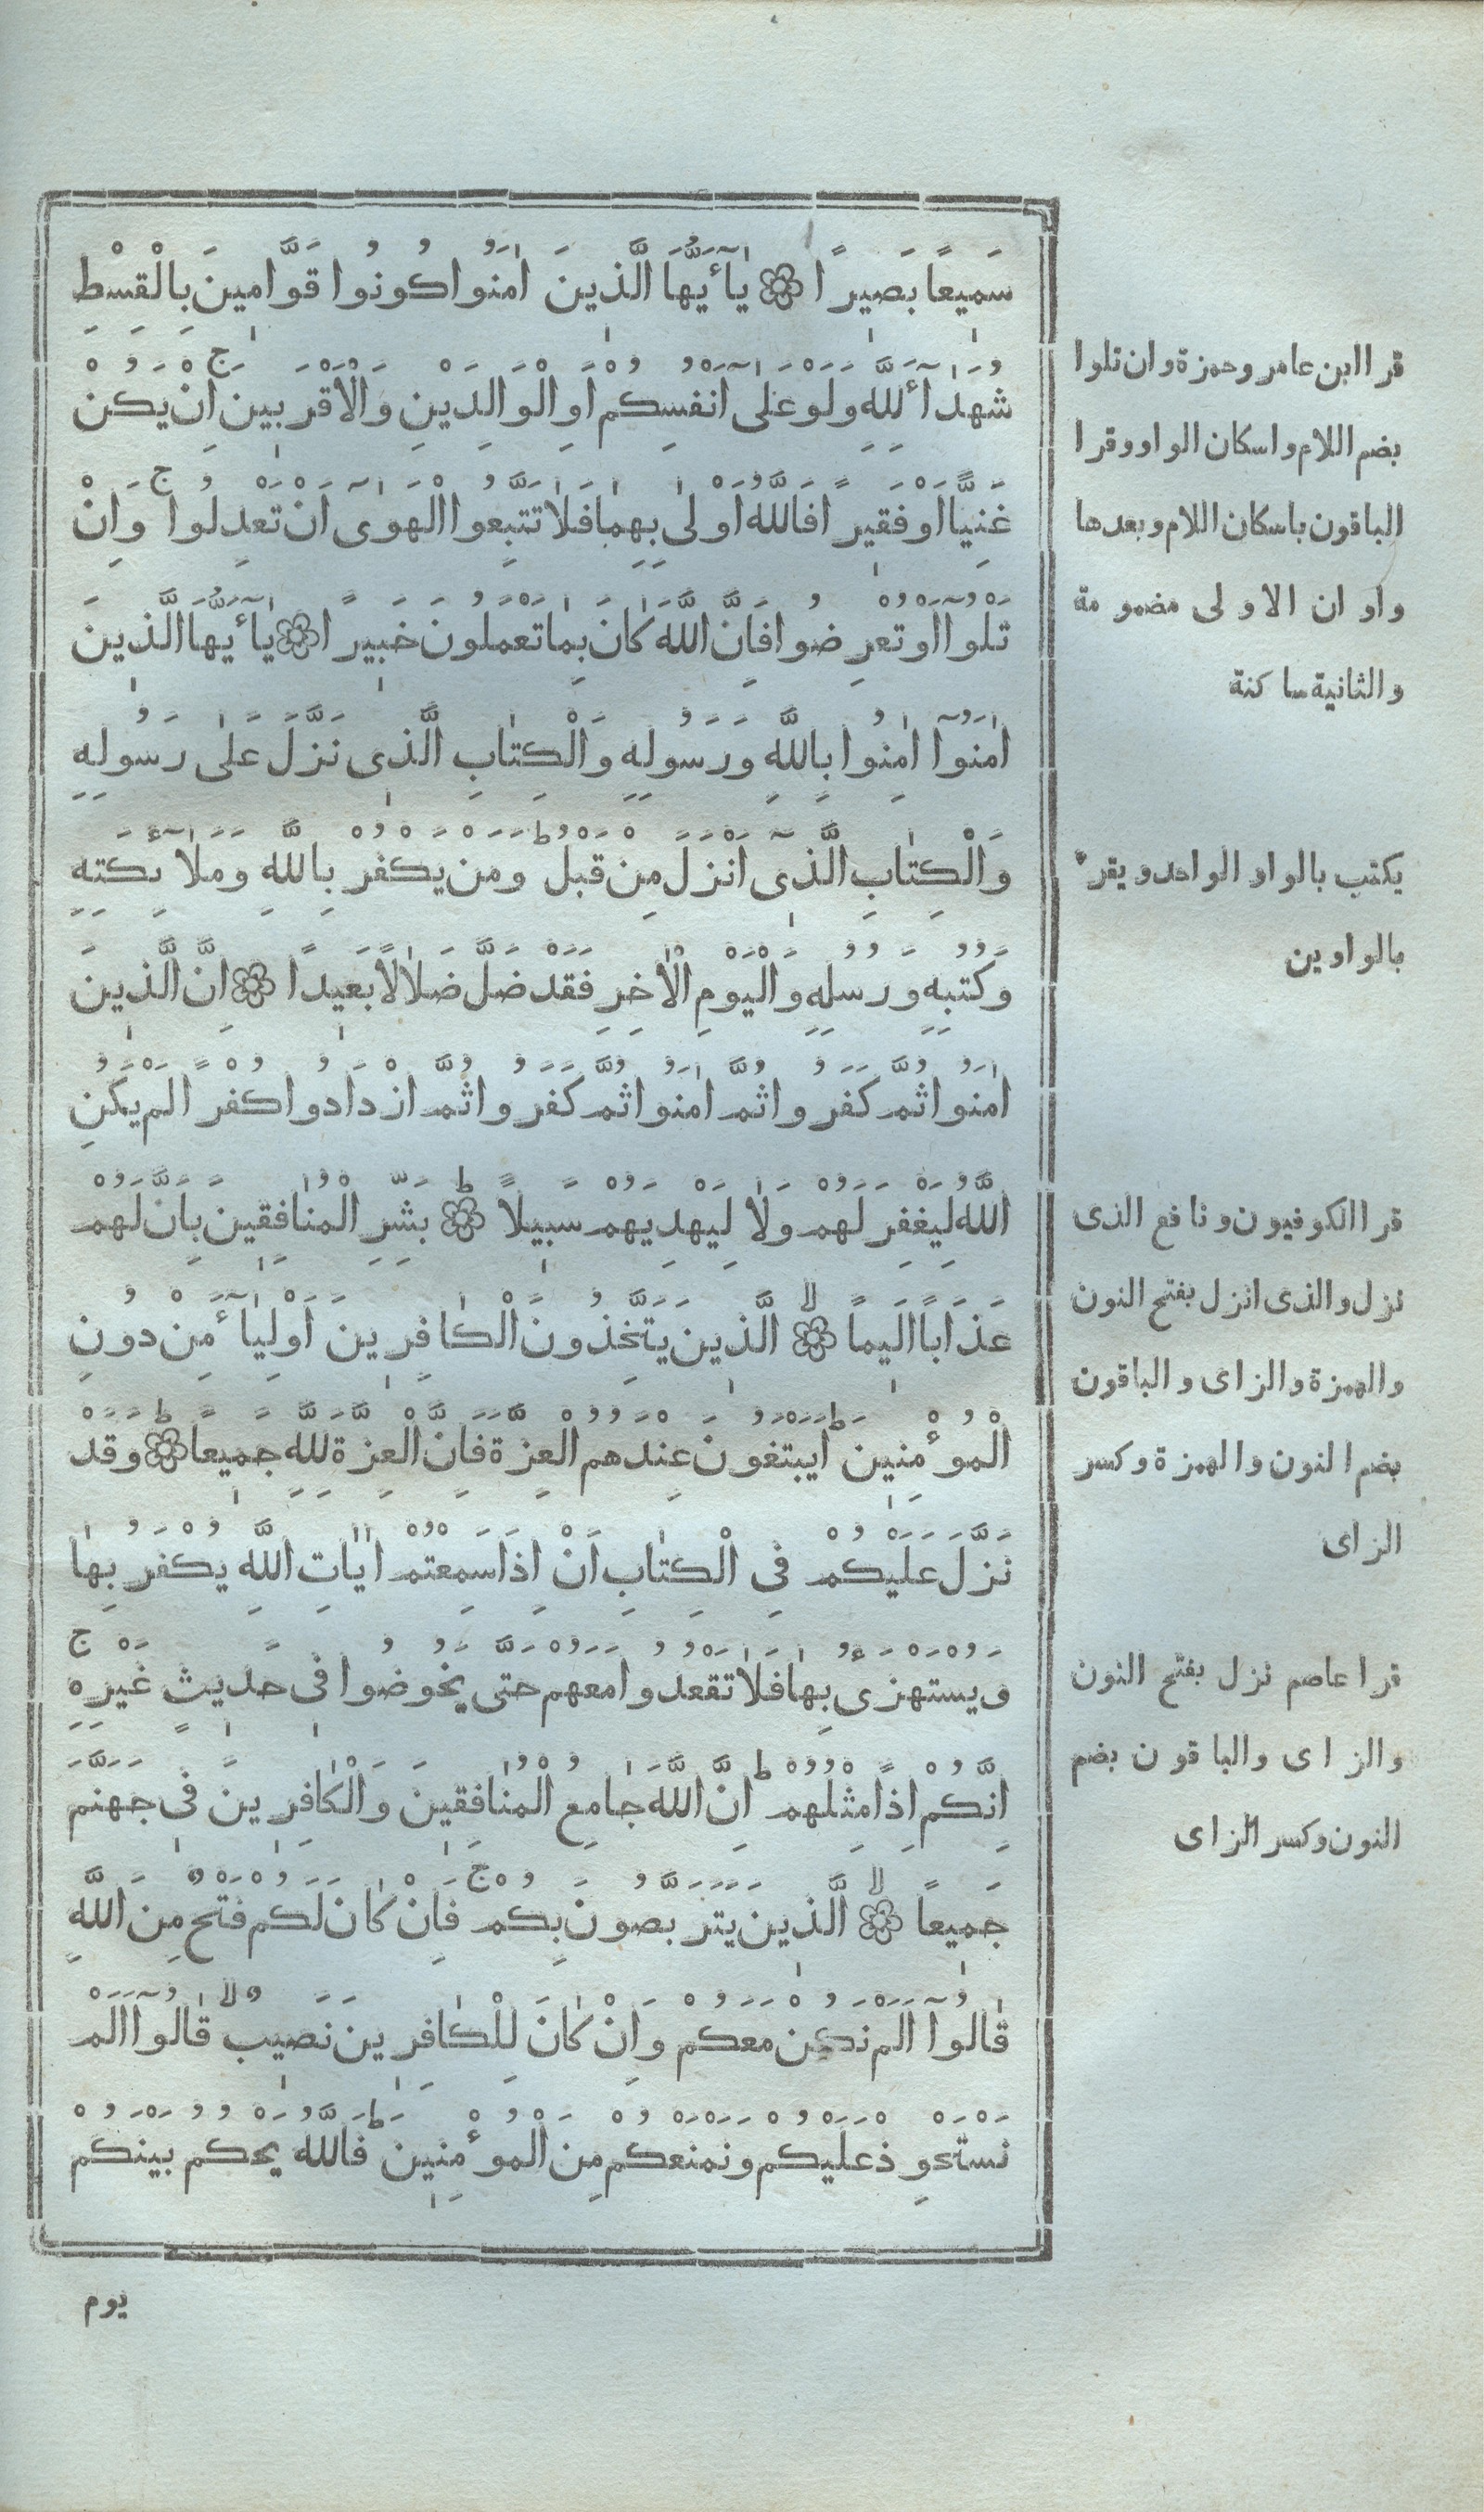 سَمِيعًا بَصِيرًا ۝ يٰآءَيُّهَا الَّذِينَ اٰمَنُوا كُونُوا قَوَّامِينَ بِالْقِسْطِ
شُهَدَآءَ لِلّٰهِ وَلَوْ عَلٰٓى اَنْفُسِكُمْ اَوِ الْوَالِدَيْنِ وَالْاَقْرَبِينَ ج اِنْ يَكُنْ
غَنِيًّا اَوْ فَقِيرًا فَاللّٰهُ اَوْلٰى بِهِمَا فَلَا تَتَّبِعُوا الْهَوٰٓى اَنْ تَعْدِلُوا ج وَاِنْ
تَلْوُٓا اَوْ تُعْرِضُوا فَاِنَّ اللّٰهَ كَانَ بِمَا تَعْمَلُونَ خَبِيرًا ۝ يٰآءَيُّهَا الَّذِينَ
اٰمَنُوٓا اٰمِنُوا بِاللّٰهِ وَرَسُولِهِ وَالْكِتٰابِ الَّذِى نَزَّلَ عَلٰى رَسُولِهِ
وَالْكِتٰابِ الَّذِىٓ اَنْزَلَ مِنْ قَبْلُ ط وَمَنْ يَكْفُرْ بِاللّٰهِ وَمَلٰٓائِكَتِهِ
وَكُتُبِهِ وَرُسُلِهِ وَالْيَوْمِ الْاٰخِرِ فَقَدْ ضَلَّ ضَلَالًا بَعِيدًا ۝ اِنَّ الَّذِينَ
اٰمَنُوا ثُمَّ كَفَرُوا ثُمَّ اٰمَنُوا ثُمَّ كَفَرُوا ثُمَّ ازْدَادُوا كُفْرًا لَمْ يَكُنِ
اللّٰهُ لِيَغْفِرَ لَهُمْ وَلَا لِيَهْدِيَهُمْ سَبِيلًا ۝ ط بَشِّرِ الْمُنَافِقِينَ بِاَنَّ لَهُمْ
عَذَابًا اَلِيمًا ۝ لا الَّذِينَ يَتَّخِذُونَ الْكَافِرِينَ اَوْلِيَآءَ مِنْ دُونِ
الْمُوْءْمِنِينَ ط اَيَبْتَغُونَ عِنْدَهُمُ الْعِزَّةَ فَاِنَّ الْعِزَّةَ لِلّٰهِ جَمِيعًا ۝ ط وَقَدْ
نَزَّلَ عَلَيْكُمْ فِى الْكِتٰابِ اَنْ اِذَا سَمِعْتُمْ اٰيٰاتِ اللّٰهِ يُكْفَرُ بِهٰا
وَيُسْتَهْزَئُ بِهٰا فَلَا تَقْعُدُوا مَعَهُمْ حَتّٰى يَخُوضُوا فِى حَدِيثٍ غَيْرِهِ ج
اِنَّكُمْ اِذًا مِثْلُهُمْ ط اِنَّ اللّٰهَ جَامِعُ الْمُنٰافِقِينَ وَالْكٰافِرِينَ فِى جَهَنَّمَ
جَمِيعًا ۝ لا الَّذِينَ يَتَرَبَّصُونَ بِكُمْ ج فَاِنْ كَانَ لَكُمْ فَتْحٌ مِنَ اللّٰهِ
قَالُوٓا اَلَمْ نَكُنْ مَعَكُمْ وَاِنْ كَانَ لِلْكٰافِرِينَ نَصِيبٌ لا قَالُوٓا اَلَمْ
نَسْتَحْوِذْ عَلَيْكُمْ وَنَمْنَعْكُمْ مِنَ الْمُوْءْمِنِينَ ط فَاللّٰهُ يَحْكُمُ بَيْنَكُمْ
يوم
قرا ابن عامر وحمزة وان تلوا
بضم اللام واسكان الواو وقرا
الباقون باسكان اللام وبعدها
واوان الاولى مضمومة
والثانية ساكنة
يكتب بالواو الواحد ويقرء
بالواوين
قرا الكوفيون ونافع الذى
نزل والذى انزل بفتح النون
والهمزة والزاى والباقون
بضم النون والهمزة وكسر
الزاى
قرا عاصم نزل بفتح النون
والزاى والباقون بضم
النون وكسر الزاى